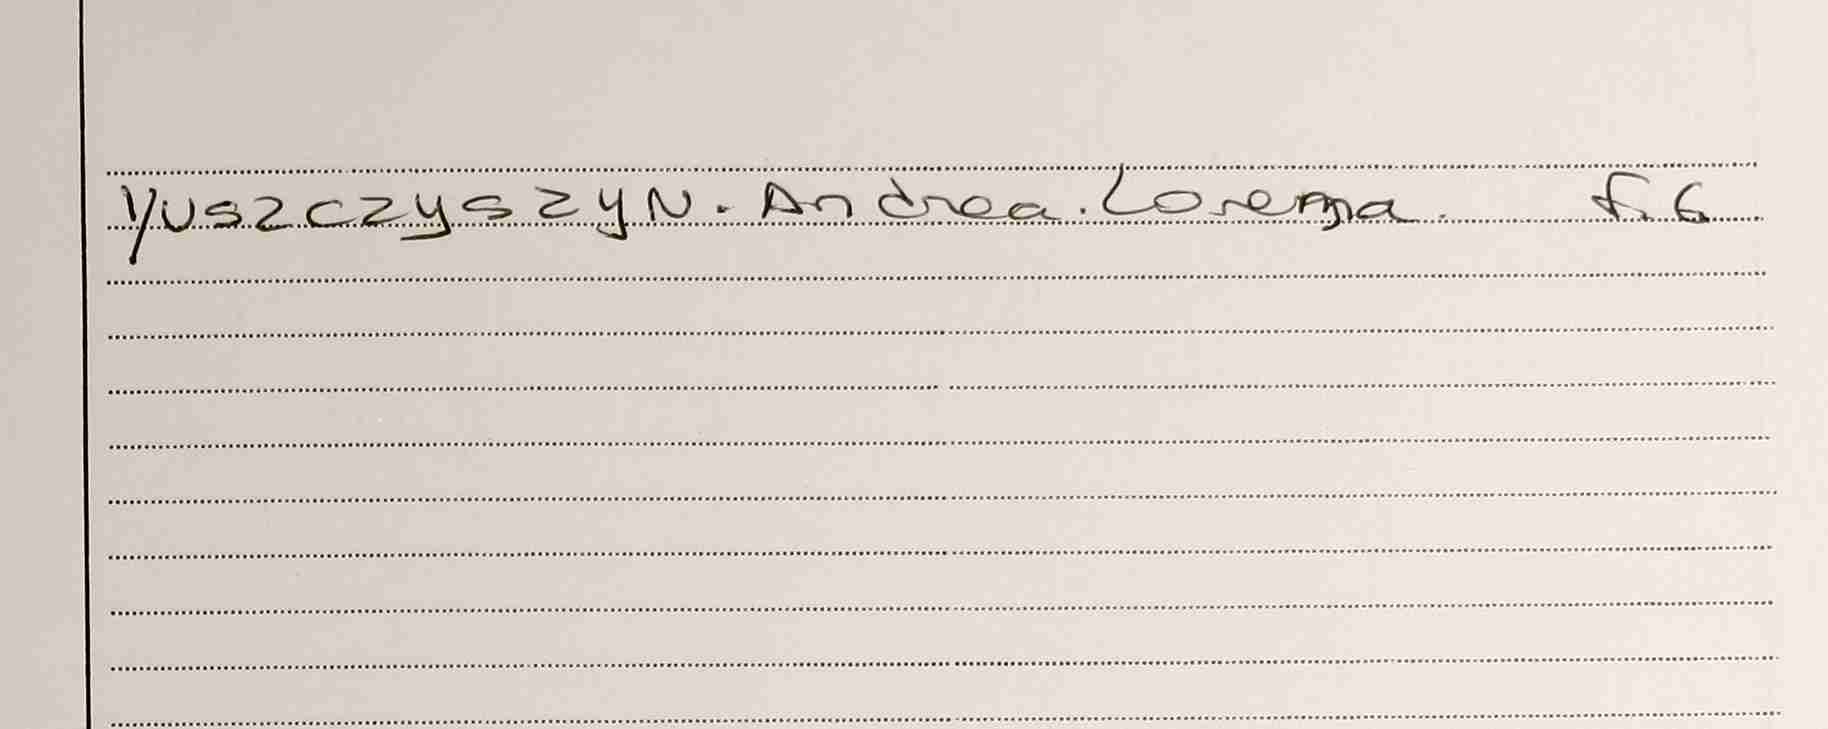 YUSZCZYSZYN. Andrea. Lorena. F. 6